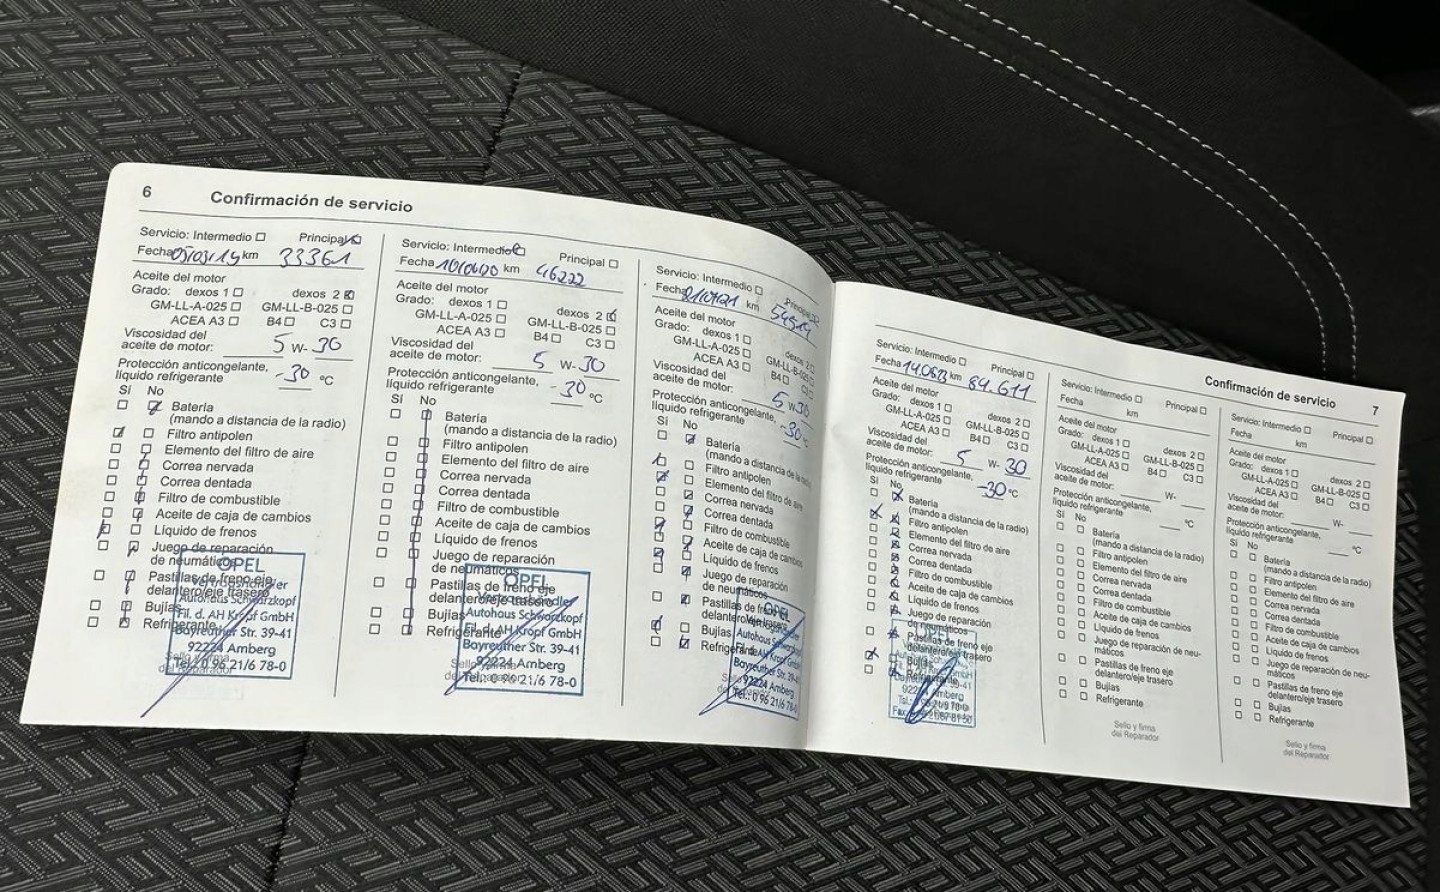 6 Confirmación de servicio
Servicio: Intermedio Principal
Fecha 05/03/19 km 33361
Aceite del motor
Grado: dexos 1 dexos 2
GM-LL-A-025 GM-LL-B-025
ACEA A3 B4 C3
Viscosidad del
aceite de motor: 5 W- 30
Protección anticongelante,
líquido refrigerante -30 °C
Sí No
Batería
(mando a distancia de la radio)
Filtro antipolen
Elemento del filtro de aire
Correa nervada
Correa dentada
Filtro de combustible
Aceite de caja de cambios
Líquido de frenos
Juego de reparación
de neumáticos
Pastillas de freno eje
delantero/eje trasero
Bujías
Refrigerante
Sello y firma
del Reparador
OPEL
Vertragshändler
Autohaus Schwarzkopf
Fil. d. AH Kropf GmbH
Bayreuther Str. 39-41
92224 Amberg
Tel.: 0 96 21/6 78-0
Servicio: Intermedio Principal
Fecha km 46222
Aceite del motor
Grado: dexos 1 dexos 2
GM-LL-A-025 GM-LL-B-025
ACEA A3 B4 C3
Viscosidad del
aceite de motor: 5 W- 30
Protección anticongelante,
líquido refrigerante -30 °C
Sí No
Batería
(mando a distancia de la radio)
Filtro antipolen
Elemento del filtro de aire
Correa nervada
Correa dentada
Filtro de combustible
Aceite de caja de cambios
Líquido de frenos
Juego de reparación
de neumáticos
Pastillas de freno eje
delantero/eje trasero
Bujías
Refrigerante
Sello y firma
del Reparador
OPEL
Vertragshändler
Autohaus Schwarzkopf
Fil. d. AH Kropf GmbH
Bayreuther Str. 39-41
92224 Amberg
Tel.: 0 96 21/6 78-0
Servicio: Intermedio Principal
Fecha km
Aceite del motor
Grado: dexos 1 dexos 2
GM-LL-A-025 GM-LL-B-025
ACEA A3 B4 C3
Viscosidad del
aceite de motor: 5 W 30
Protección anticongelante,
líquido refrigerante -30 °C
Sí No
Batería
(mando a distancia de la radio)
Filtro antipolen
Elemento del filtro de aire
Correa nervada
Correa dentada
Filtro de combustible
Aceite de caja de cambios
Líquido de frenos
Juego de reparación
de neumáticos
Pastillas de freno eje
delantero/eje trasero
Bujías
Refrigerante
OPEL
Vertragshändler
Autohaus Schwarzkopf
Fil. d. AH Kropf GmbH
Bayreuther Str. 39-41
92224 Amberg
Tel.: 0 96 21/6 78-0
Confirmación de servicio 7
Servicio: Intermedio Principal
Fecha 14.08.23 km 84.611
Aceite del motor
Grado: dexos 1 dexos 2
GM-LL-A-025 GM-LL-B-025
ACEA A3 B4 C3
Viscosidad del
aceite de motor: 5 W- 30
Protección anticongelante,
líquido refrigerante -30 °C
Sí No
Batería
(mando a distancia de la radio)
Filtro antipolen
Elemento del filtro de aire
Correa nervada
Correa dentada
Filtro de combustible
Aceite de caja de cambios
Líquido de frenos
Juego de reparación
de neumáticos
Pastillas de freno eje
delantero/eje trasero
Bujías
Refrigerante
OPEL
92224 Amberg
Servicio: Intermedio Principal
Fecha km
Aceite del motor
Grado: dexos 1 dexos 2
GM-LL-A-025 GM-LL-B-025
ACEA A3 B4 C3
Viscosidad del
aceite de motor: W-
Protección anticongelante,
líquido refrigerante °C
Sí No
Batería
(mando a distancia de la radio)
Filtro antipolen
Elemento del filtro de aire
Correa nervada
Correa dentada
Filtro de combustible
Aceite de caja de cambios
Líquido de frenos
Juego de reparación de neu-
máticos
Pastillas de freno eje
delantero/eje trasero
Bujías
Refrigerante
Sello y firma
del Reparador
Servicio: Intermedio Principal
Fecha km
Aceite del motor
Grado: dexos 1 dexos 2
GM-LL-A-025 GM-LL-B-025
ACEA A3 B4 C3
Viscosidad del
aceite de motor: W-
Protección anticongelante,
líquido refrigerante °C
Sí No
Batería
(mando a distancia de la radio)
Filtro antipolen
Elemento del filtro de aire
Correa nervada
Correa dentada
Filtro de combustible
Aceite de caja de cambios
Líquido de frenos
Juego de reparación de neumáticos
Pastillas de freno eje
delantero/eje trasero
Bujías
Refrigerante
Sello y firma
del Reparador